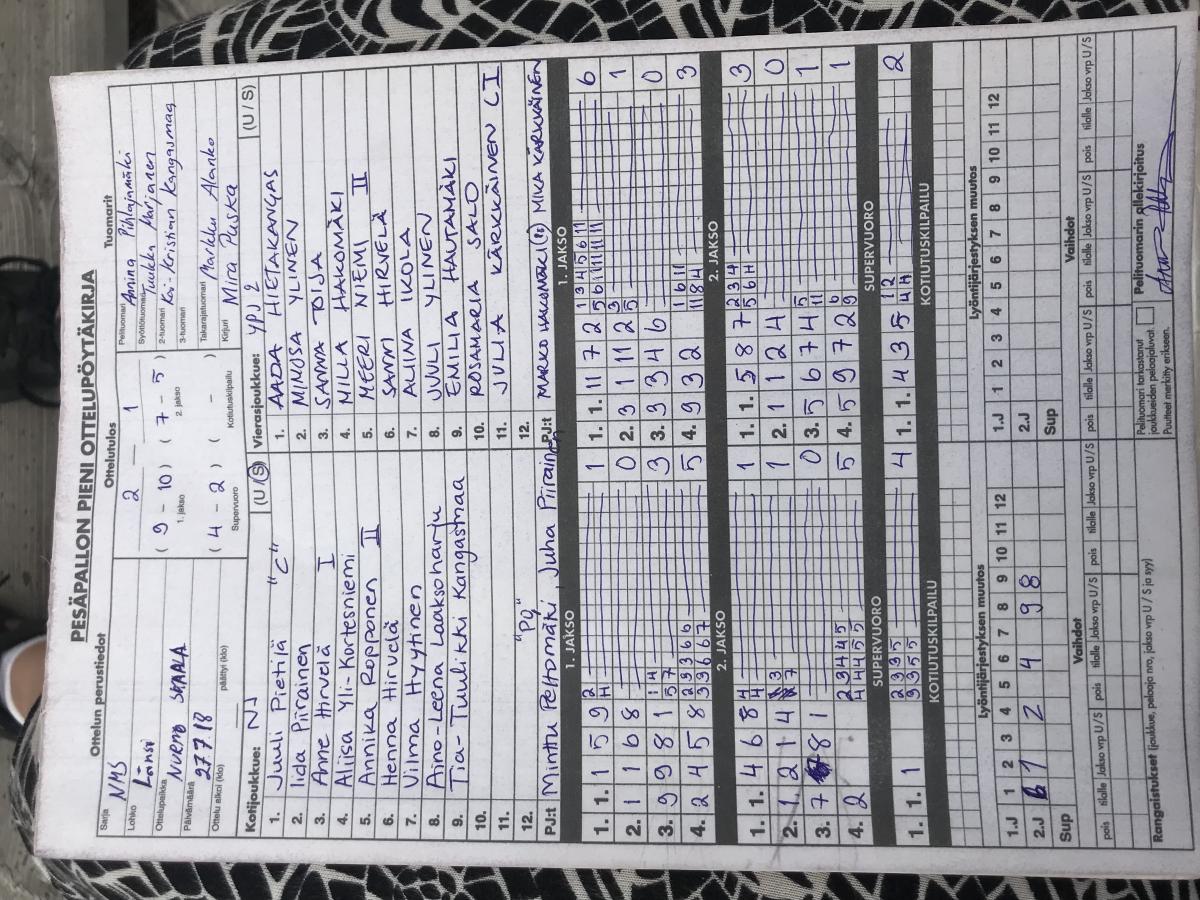 PESÄPALLON PIENI OTTELUPÖYTÄKIRJA
Ottelun perustiedot
Sarja NMS
Lohko Länsi
Ottelupaikka NURMO SHALA
Päivämäärä 27718
Ottelu alkoi (klo) päättyi (klo)
Ottelutulos
2 – 1
( 9 – 10 ) ( 7 – 5 )
1. jakso 2. jakso
( 4 – 2 ) ( – )
Supervuoro Kotiutuskilpailu
Tuomarit
Pelituomari Annina Pihlajamäki
Syöttötuomari Tuukka Marjanen
2-tuomari Kai-Kristian Kangasmaa
3-tuomari
Takarajatuomari Markku Alanko
Kirjuri Mira Puska
Kotijoukkue: NJ (U / S)
1. Juuli Pietilä "C"
2. Iida Piirainen
3. Anne Hirvelä I
4. Aliisa Yli-Kortesniemi
5. Annika Ropponen II
6. Henna Hirvelä
7. Vilma Hyytinen
8. Aino-Leena Laaksoharju
9. Tia-Tuulikki Kangasmaa
10.
11.
12. "PJ"
PJ:t Minttu Peltomäki, Juha Piirainen
Vierasjoukkue: YPJ 2 (U / S)
1. AADA HIETAKANGAS
2. MINSA YLINEN
3. SANNA TOIJA
4. MILLA HAKOMÄKI
5. MEERI NIEMI II
6. SANNI HIRVELÄ
7. ALINA IKOLA
8. JUULI YLINEN
9. EMILIA HAUTAMÄKI
10. ROSAMARIA SALO
11. JULIA KÄRKKÄINEN C I
12.
PJ:t MIKA KÄRKKÄINEN
1. JAKSO
1. 1. 1 5 9 2 4 1
2. 1 1 6 8 0
3. 9 9 8 1 1 4 5 7 3
4. 2 4 5 8 2 3 3 6 6 3 3 6 6 7 5
1. JAKSO
1. 1. 11 7 2 1 3 4 5 6 11 5 6 11 11 11 6
2. 3 1 11 2 3 5 1
3. 3 3 4 6 0
4. 9 3 2 1 6 11 11 8 4 3
2. JAKSO
1. 1. 4 6 8 4 4 1
2. 1 2 1 4 3 7 1
3. 7 8 1 0
4. 2 2 3 4 4 5 4 4 4 5 5 5
2. JAKSO
1. 1. 5 8 7 2 3 4 5 6 4 3
2. 1 1 2 4 0
3. 5 6 7 4 5 11 1
4. 5 9 7 2 6 9 1
SUPERVUORO
1. 1. 1 2 3 5 3 3 5 5 4
SUPERVUORO
1. 1. 4 3 5 1 2 4 4 2
KOTIUTUSKILPAILU
KOTIUTUSKILPAILU
Lyöntijärjestyksen muutos
1.J 1 2 3 4 5 6 7 8 9 10 11 12
2.J 6 1 2 4 9 8
Sup
Lyöntijärjestyksen muutos
1.J 1 2 3 4 5 6 7 8 9 10 11 12
2.J
Sup
Vaihdot
pois tilalle Jakso vrp U / S pois tilalle Jakso vrp U / S pois tilalle Jakso vrp U / S
Vaihdot
pois tilalle Jakso vrp U / S pois tilalle Jakso vrp U / S pois tilalle Jakso vrp U / S
Rangaistukset (joukkue, pelaaja nro, jakso vrp U / S ja syy)
Pelituomari tarkastanut
joukkueiden peloajaluvat
Puutteet merkitty erikseen.
Pelituomarin allekirjoitus